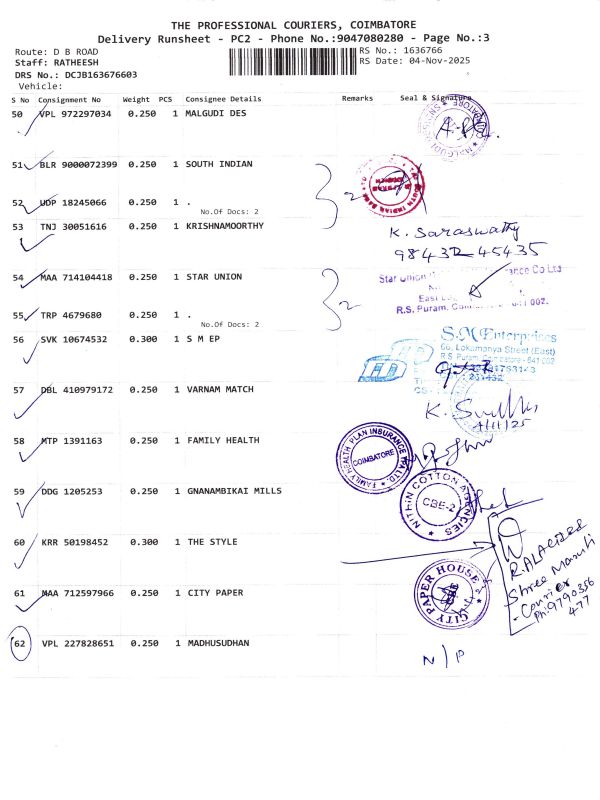 THE PROFESSIONAL COURIERS, COIMBATORE
Delivery Runsheet - PC2 - Phone No.:9047080280 - Page No.:3
Route: D B ROAD RS No.: 1636766
Staff: RATHEESH RS Date: 04-Nov-2025
DRS No.: DCJB163676603
Vehicle:
S No Consignment No Weight PCS Consignee Details Remarks Seal & Signature
50 VPL 972297034 0.250 1 MALGUDI DES
51 BLR 9000072399 0.250 1 SOUTH INDIAN
2
SOUTH INDIAN BANK
52 UDP 18245066 0.250 1 .
No.Of Docs: 2
53 TNJ 30051616 0.250 1 KRISHNAMOORTHY
K. Saraswathy
98432-45435
54 MAA 714104418 0.250 1 STAR UNION
2
Star Union
East Lo
R.S. Puram,
55 TRP 4679680 0.250 1 .
No.Of Docs: 2
56 SVK 10674532 0.300 1 S M EP
S.M Enterprises
Co, Lokamanya Street (East)
R.S. Puram, Coimbatore - 641 002
57 DBL 410979172 0.250 1 VARNAM MATCH
4/11/25
58 MTP 1391163 0.250 1 FAMILY HEALTH
FAMILY HEALTH PLAN INSURANCE
COIMBATORE
59 DDG 1205253 0.250 1 GNANAMBIKAI MILLS
NITHIN COTTON AGENCIES
CBE-2
60 KRR 50198452 0.300 1 THE STYLE
Shree Maruti
- Courier
Ph: 9790356
477
61 MAA 712597966 0.250 1 CITY PAPER
CITY PAPER HOUSE
62 VPL 227828651 0.250 1 MADHUSUDHAN
N/P